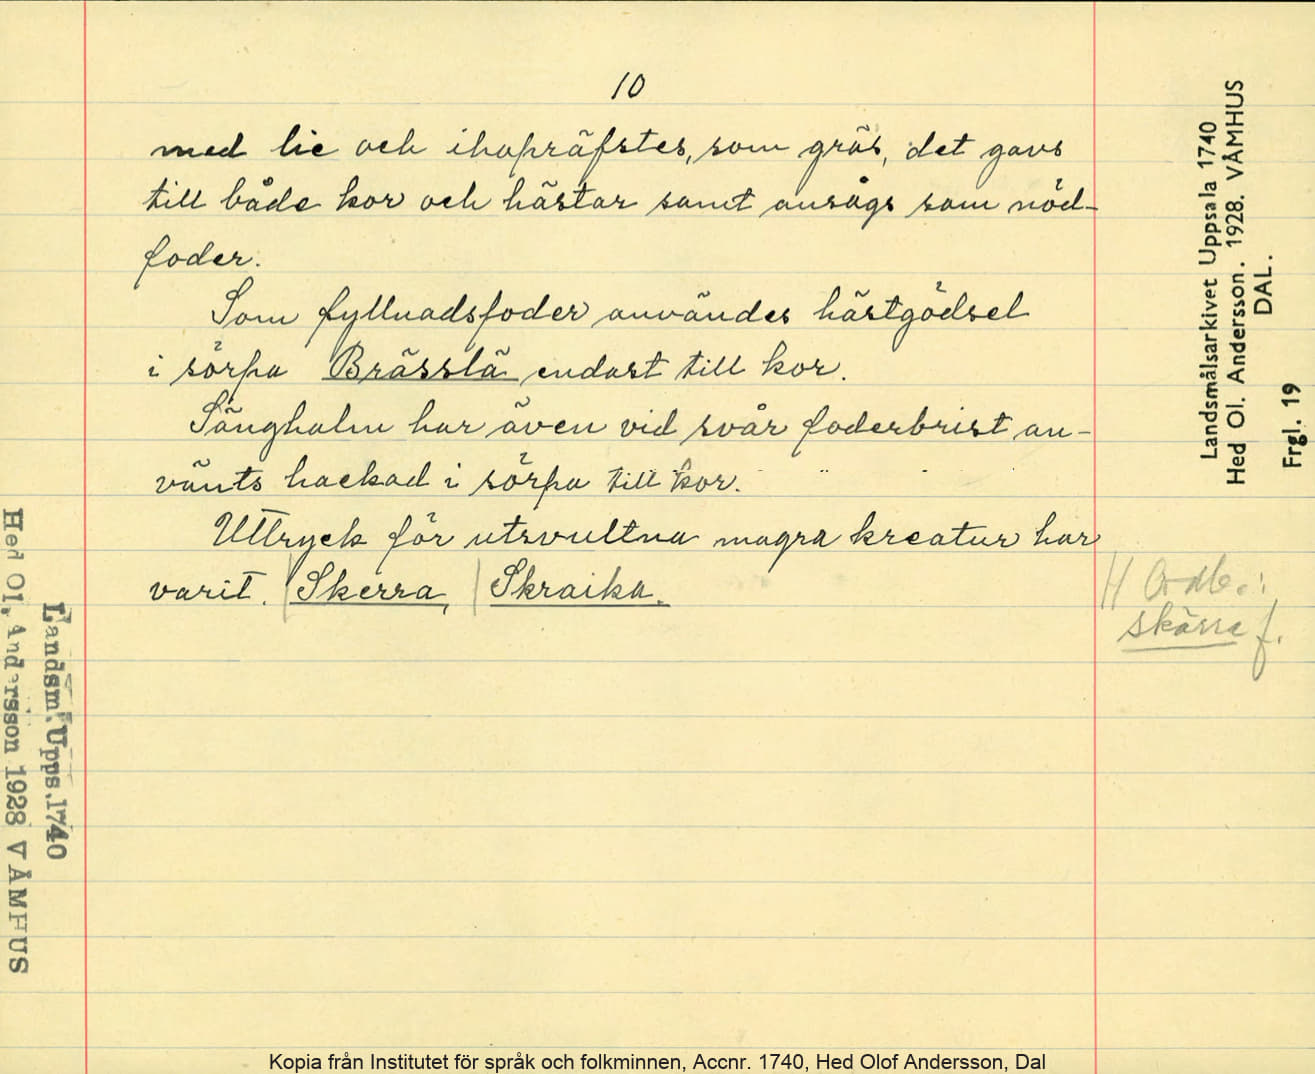 10
med lie och ihopräfstes, som gräs, det gavs
till både kor och hästar samt ansågs som nöd-
foder.
Som fyllnadsfoder användes hästgödsel
i sörpa Brässlä endast till kor.
Sänghalm har även vid svår foderbrist an-
vänts hackad i sörpa till kor.
Uttryck för utsvultna magra kreatur har
varit. Skerra, Skraika.
Ordb.:
skärra f.
Landsmålsarkivet Uppsala 1740
Hed Ol. Andersson. 1928. VÅMHUS
DAL.
Frgl. 19
Landsm. Upps. 1740
Hed Ol. Andersson 1928 VÅMHUS
Kopia från Institutet för språk och folkminnen, Accnr. 1740, Hed Olof Andersson, Dal